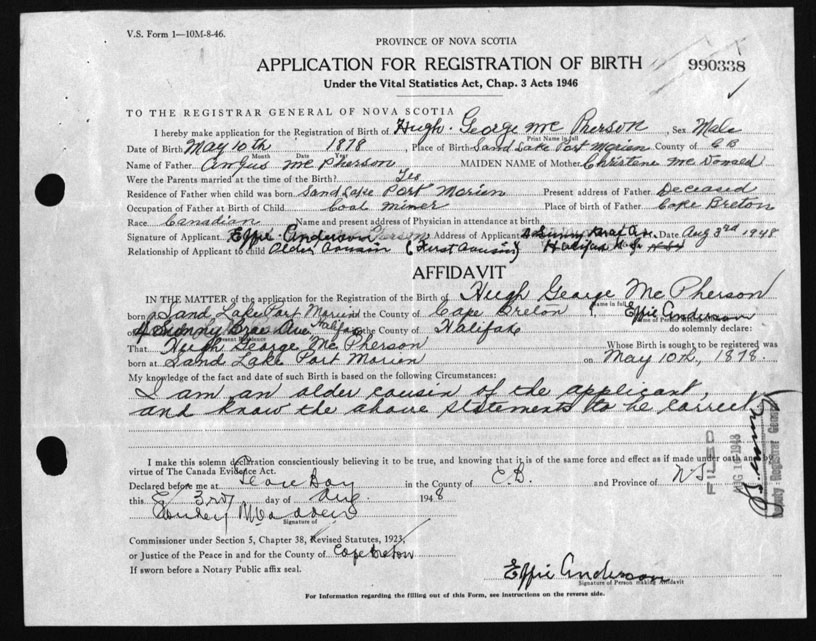 V.S. Form 1—10M-8-46.
PROVINCE OF NOVA SCOTIA
APPLICATION FOR REGISTRATION OF BIRTH 990338
Under the Vital Statistics Act, Chap. 3 Acts 1946
TO THE REGISTRAR GENERAL OF NOVA SCOTIA
I hereby make application for the Registration of Birth of Hugh George Mc Pherson, Sex Male
Print Name in full
Date of Birth May 10th 1878, Place of Birth Sand Lake Port Morien County of C B
Month Date Year
Name of Father Angus Mc Pherson MAIDEN NAME of Mother Christene Mc Donald
Were the Parents married at the time of the Birth? Yes
Residence of Father when child was born Sand Lake Port Morien Present address of Father Deceased
Occupation of Father at Birth of Child Coal Miner Place of birth of Father Cape Breton
Race Canadian Name and present address of Physician in attendance at birth
Signature of Applicant Effie Anderson Address of Applicant 4 Sunny Brae Ave. Date Aug 3rd 1948
Relationship of Applicant to child Older Cousin (First Cousin) Halifax N.S.
AFFIDAVIT
IN THE MATTER of the application for the Registration of the Birth of Hugh George Mc Pherson
Name in full
born at Sand Lake Port Morien in the County of Cape Breton I, Effie Anderson
of 4 Sunny Brae Ave Halifax in the County of Halifax do solemnly declare:
Present Residence
That Hugh George Mc Pherson Whose Birth is sought to be registered was
born at Sand Lake Port Morien on May 10th, 1878.
My knowledge of the fact and date of such Birth is based on the following Circumstances:
I am an older cousin of the applicant,
and know the above statements to be correct
I make this solemn declaration conscientiously believing it to be true, and knowing that it is of the same force and effect as if made under oath and by
virtue of The Canada Evidence Act.
Declared before me at Glace Bay in the County of C.B. and Province of N S
this 3rd day of Aug. 1948
Signature of
Commissioner under Section 5, Chapter 38, Revised Statutes, 1923,
or Justice of the Peace in and for the County of Cape Breton
If sworn before a Notary Public affix seal.
Effie Anderson
Signature of Person making Affidavit
For Information regarding the filling out of this Form, see instructions on the reverse side.
FILED
AUG 1948
Deputy Registrar General